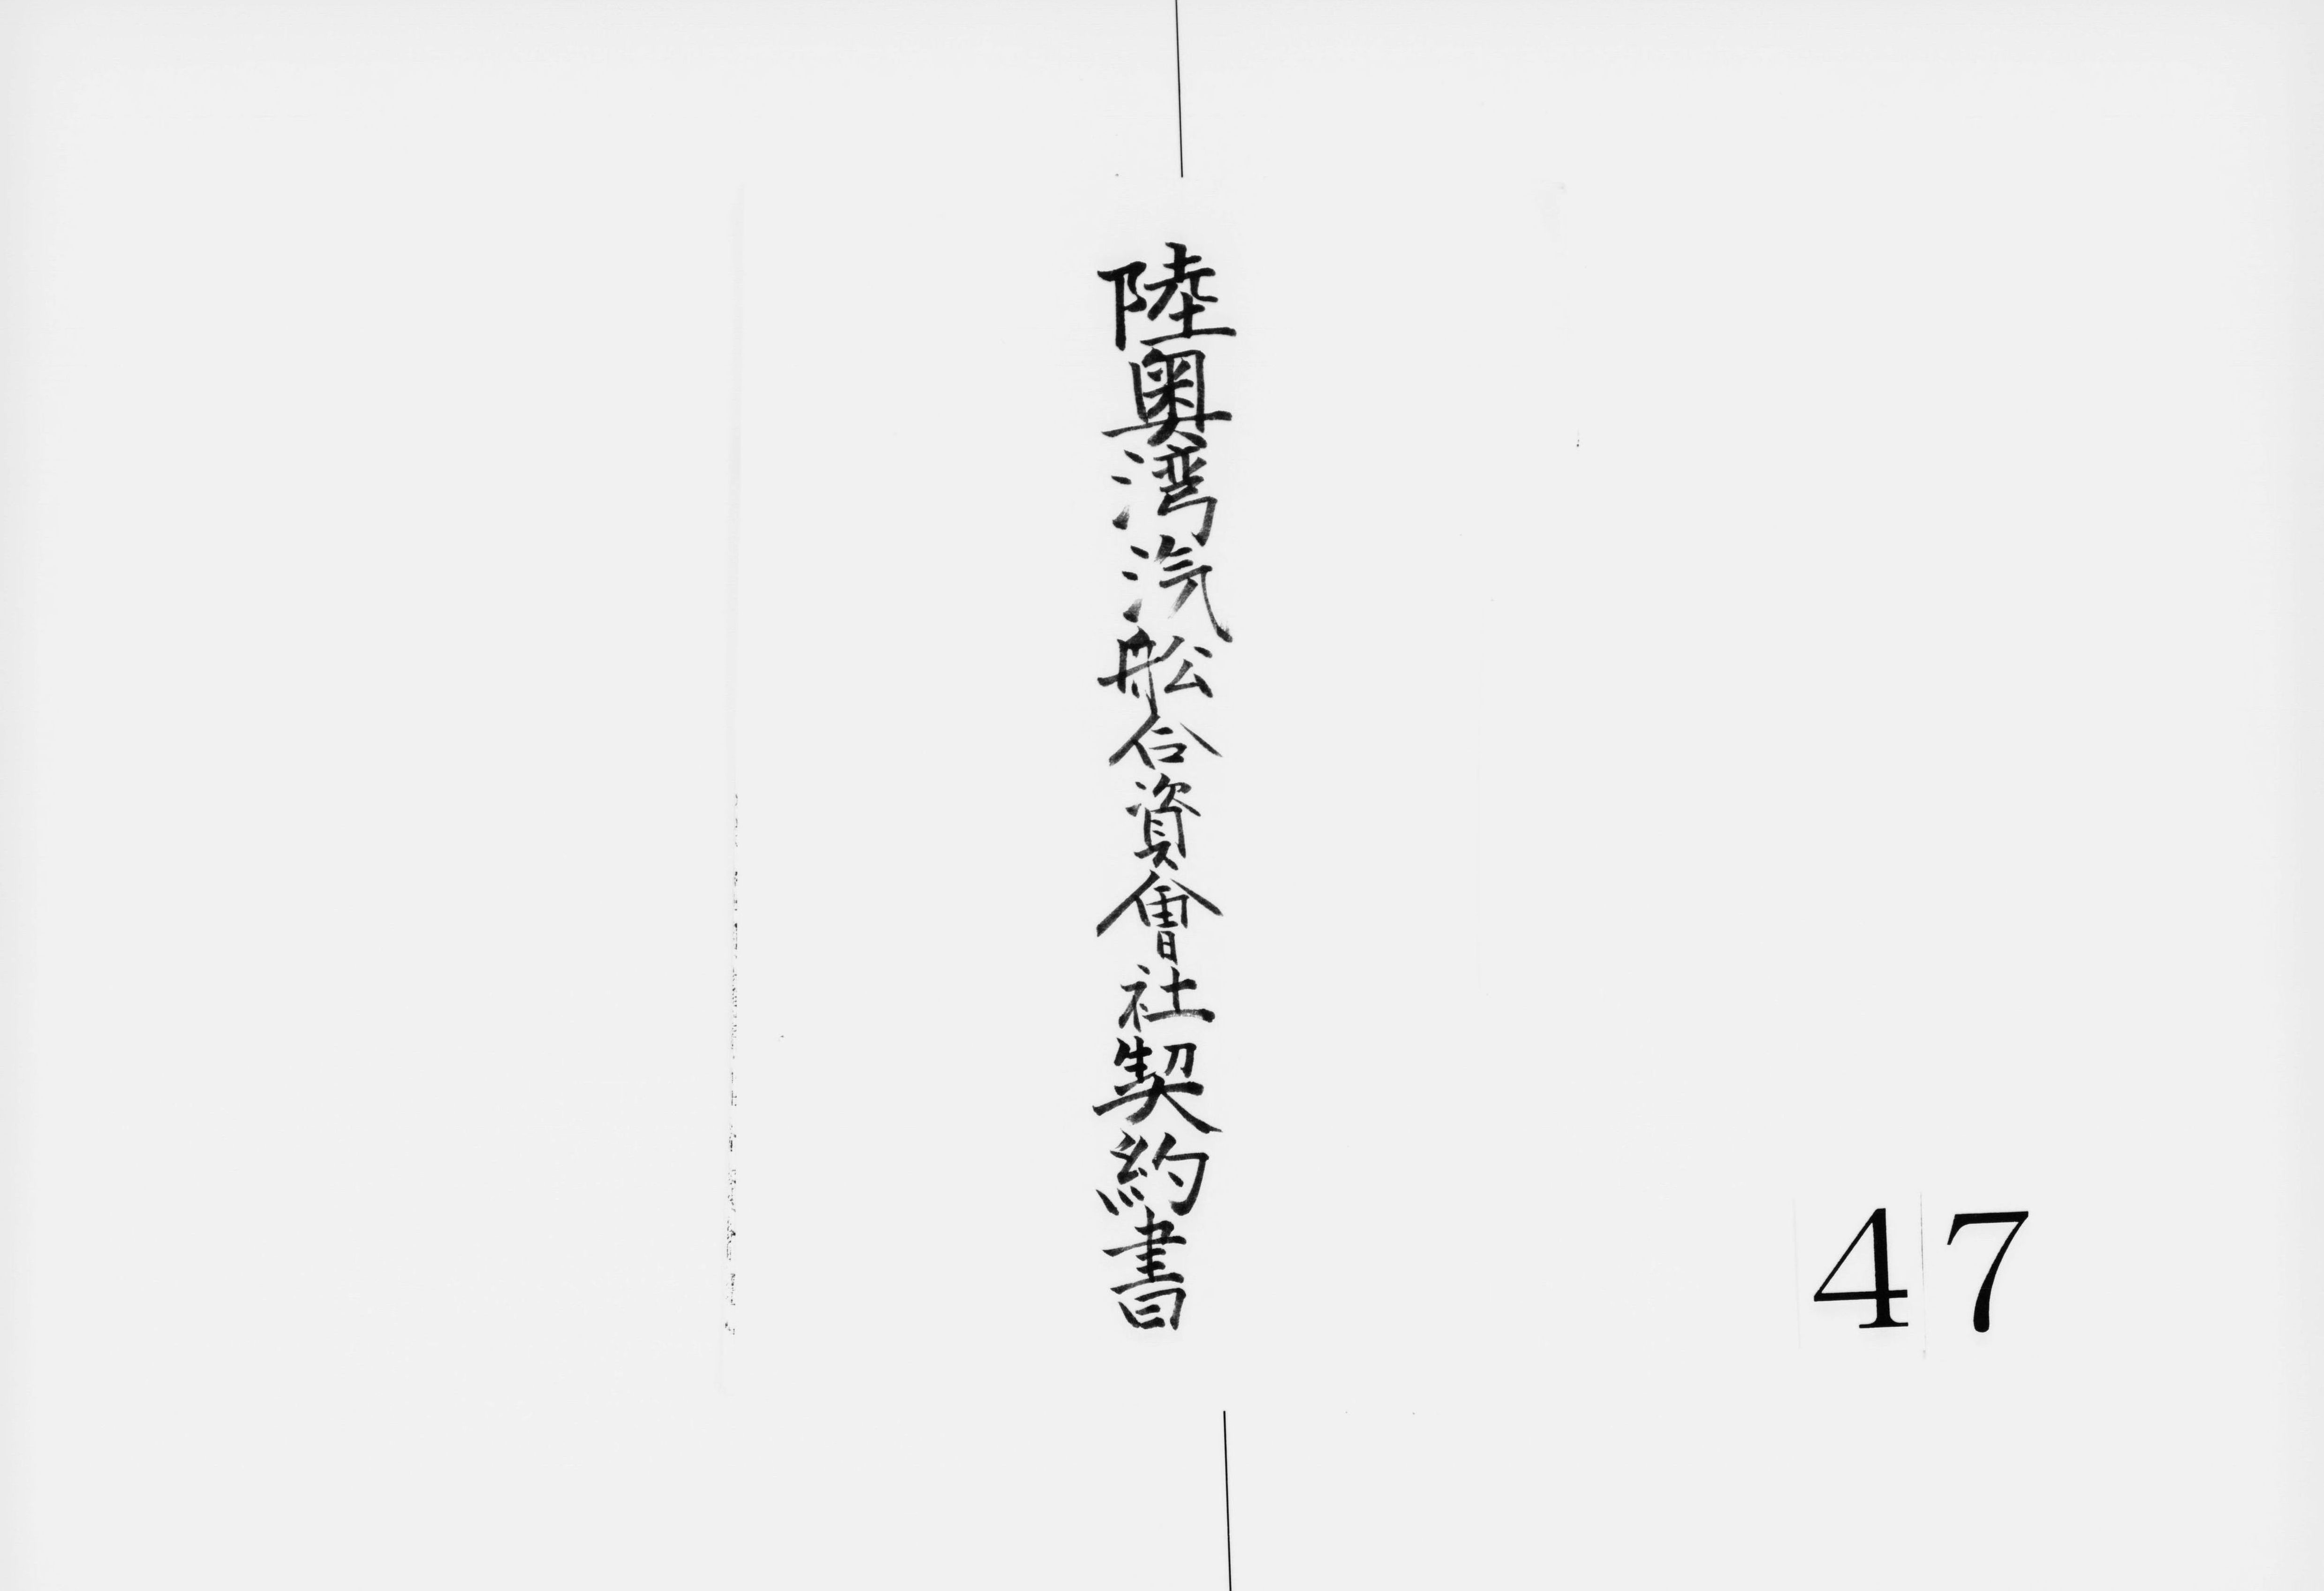 陸奥湾汽舩合資會社契約書
47